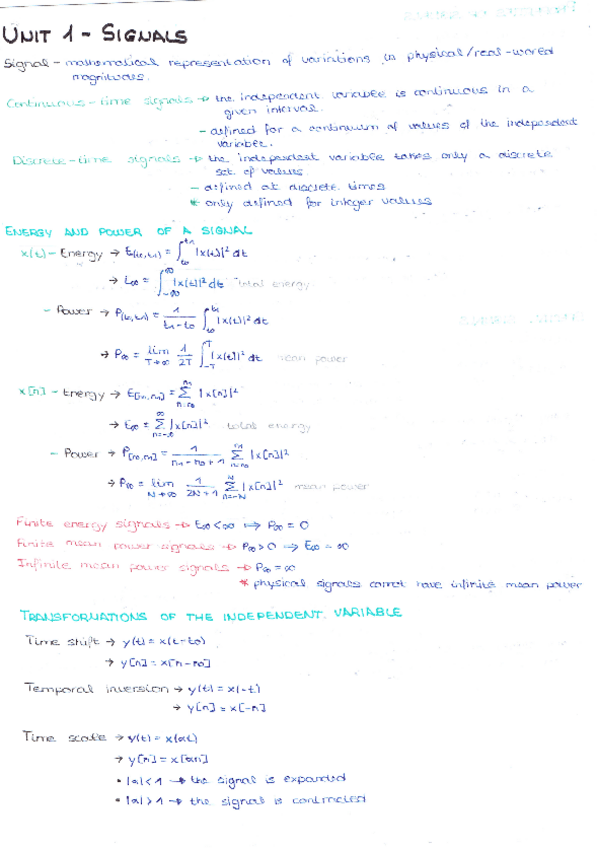 UNIT 1 - SIGNALS
Signal - mathematical representation of variations in physical/real-world
magnitudes.
Continuous-time signals → the independent variable is continuous in a
given interval.
- defined for a continuum of values of the independent
variable.
Discrete-time signals → the independent variable takes only a discrete
set of values
- defined at discrete times
* only defined for integer values
ENERGY AND POWER OF A SIGNAL
x(t) - Energy → E(t0,t1) = ∫_{t0}^{t1} |x(t)|² dt
→ E∞ = ∫_{-∞}^{∞} |x(t)|² dt total energy
- Power → P(t0,t1) = 1/(t1-t0) ∫_{t0}^{t1} |x(t)|² dt
→ P∞ = lim_{T→∞} 1/2T ∫_{-T}^{T} |x(t)|² dt mean power
x[n] - Energy → E[n0,n1] = Σ_{n=n0}^{n1} |x[n]|²
→ E∞ = Σ_{n=-∞}^{∞} |x[n]|² total energy
- Power → P[n0,n1] = 1/(n1-n0+1) Σ_{n=n0}^{n1} |x[n]|²
→ P∞ = lim_{N→∞} 1/(2N+1) Σ_{n=-N}^{N} |x[n]|² mean power
Finite energy signals → E∞ < ∞ ⟹ P∞ = 0
Finite mean power signals → P∞ > 0 ⟹ E∞ = ∞
Infinite mean power signals → P∞ = ∞
* physical signals cannot have infinite mean power
TRANSFORMATIONS OF THE INDEPENDENT VARIABLE
Time shift → y(t) = x(t-t0)
→ y[n] = x[n-n0]
Temporal inversion → y(t) = x(-t)
→ y[n] = x[-n]
Time scale → y(t) = x(at)
→ y[n] = x[an]
• |a| < 1 → the signal is expanded
• |a| > 1 → the signal is contracted